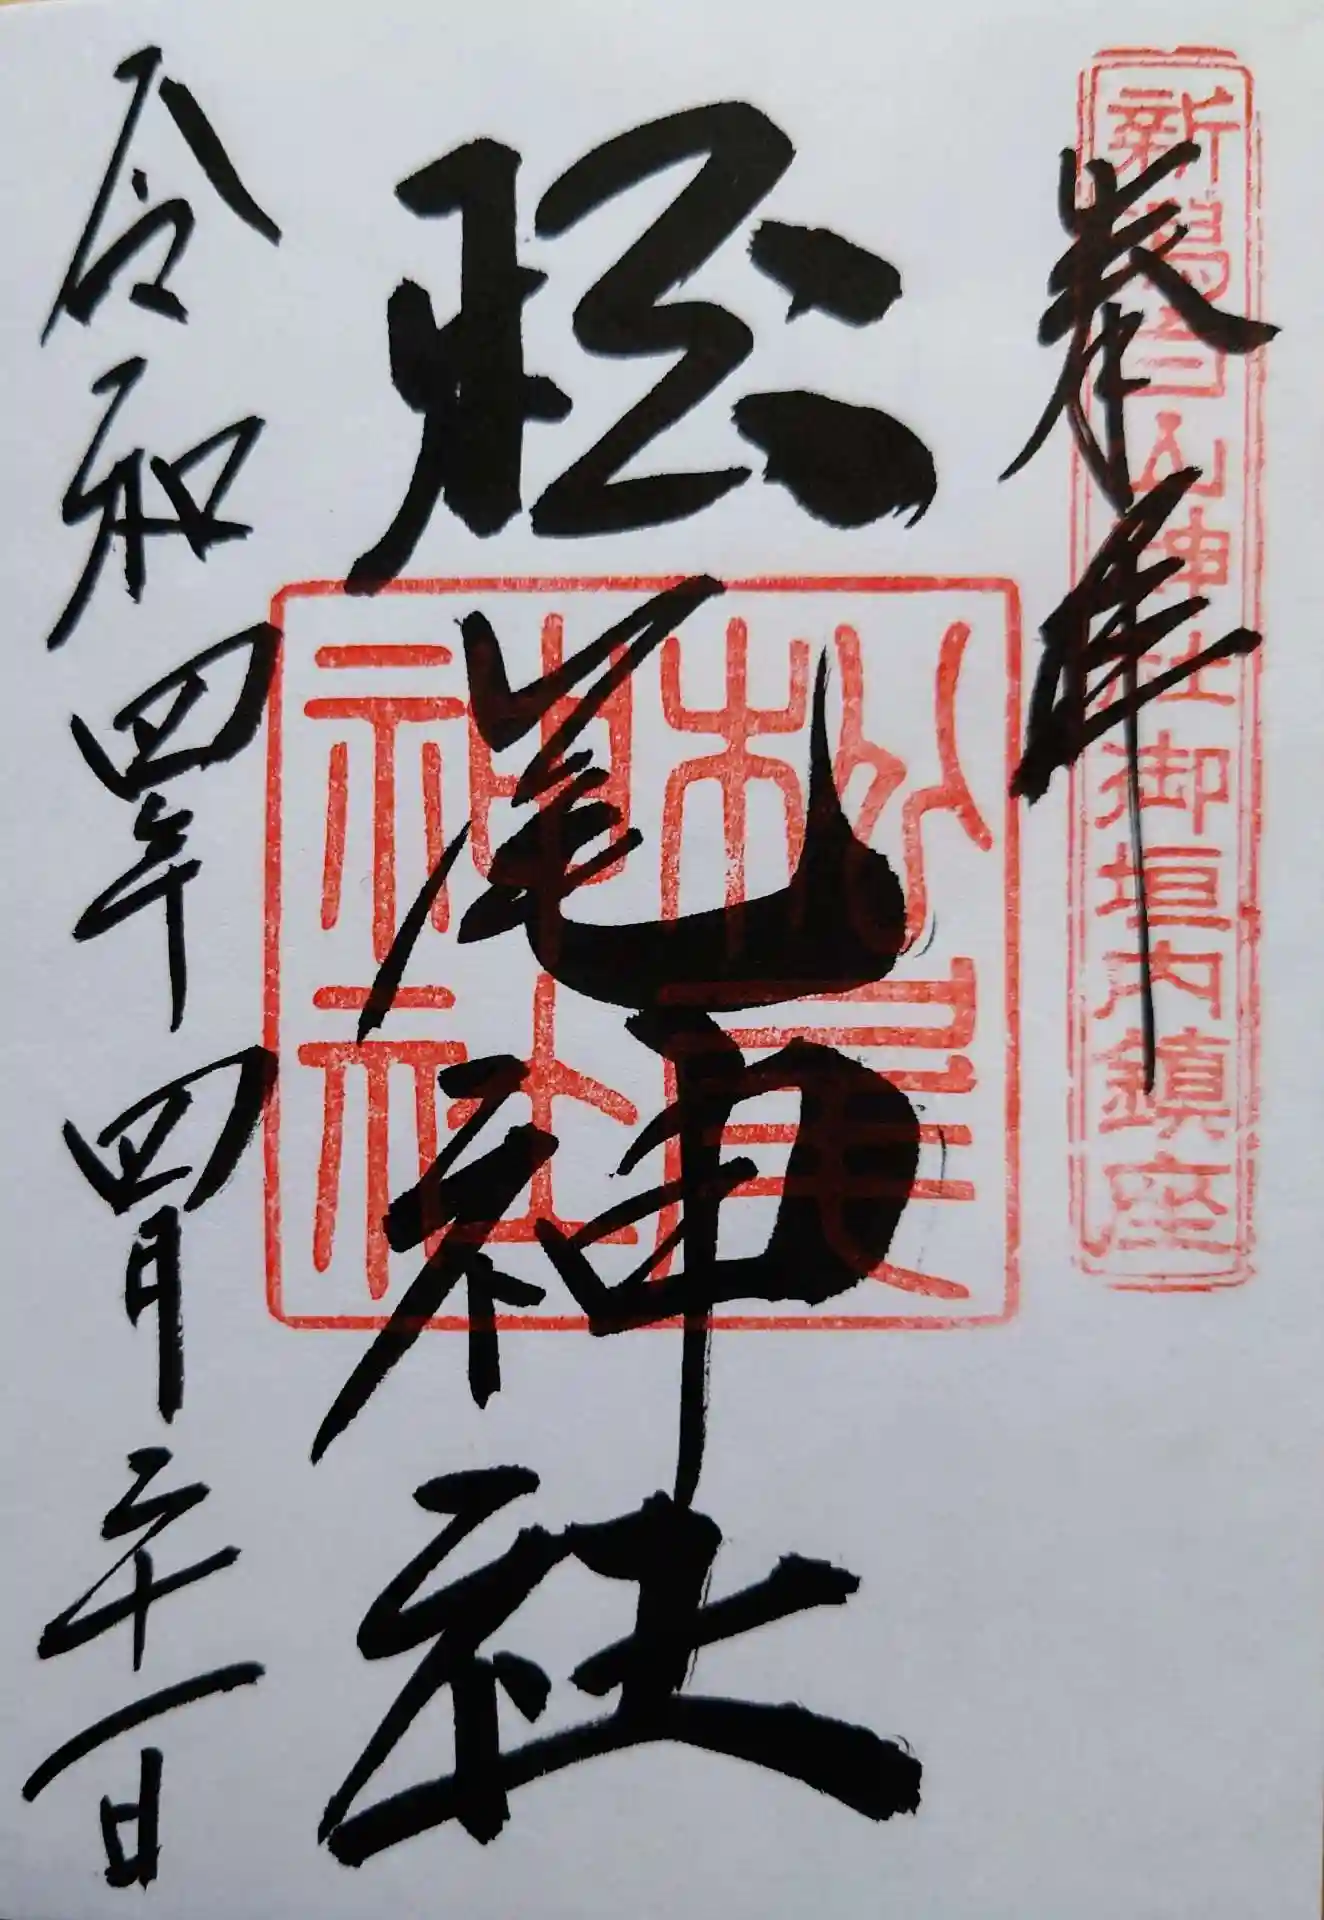 奉拝
新潟白山神社御垣内鎮座
松尾神社
松尾神社
令和四年四月二十一日